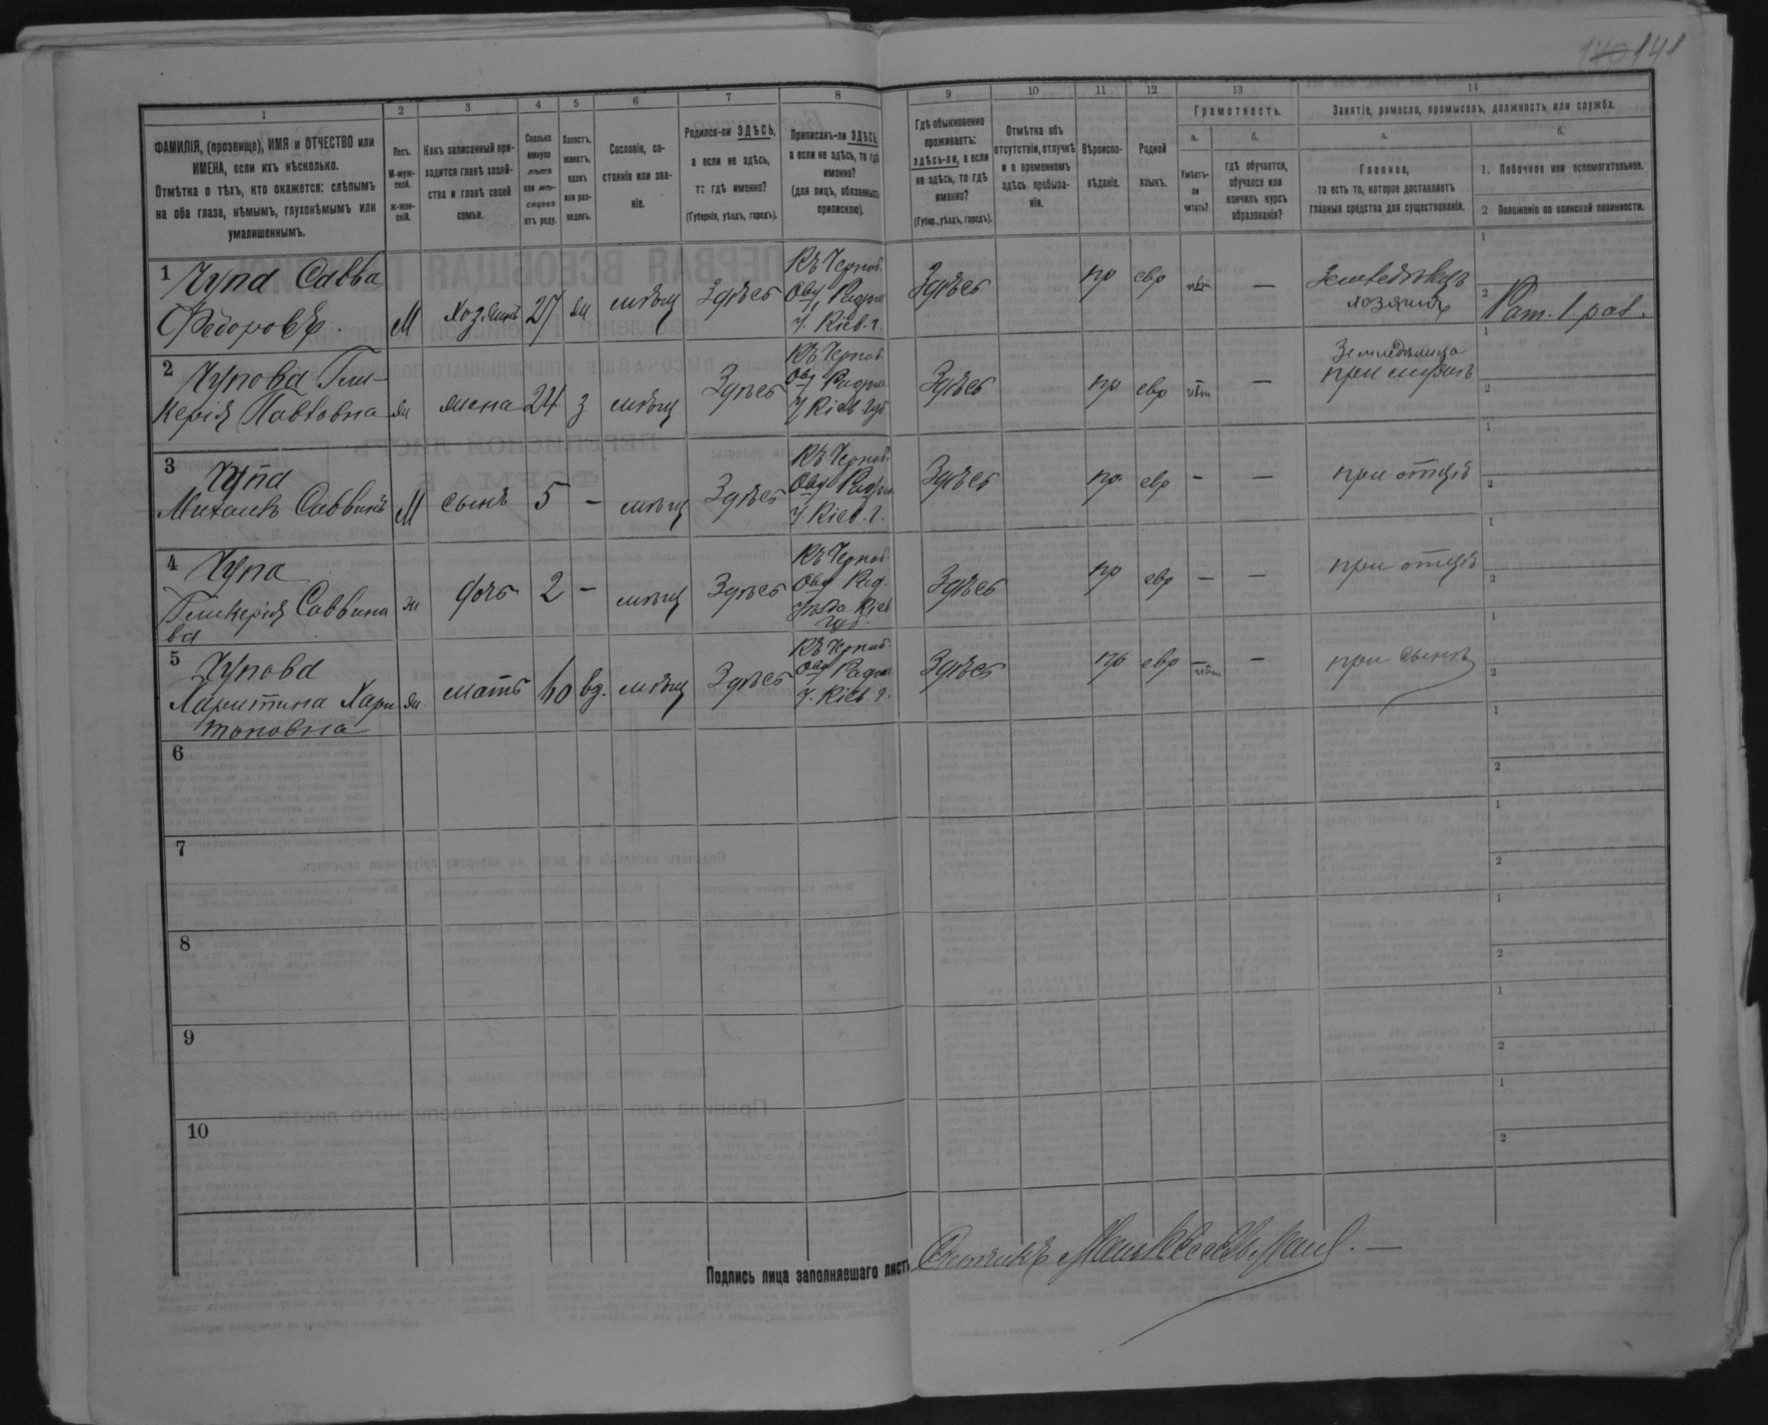 140 141
1
2
3
4
5
6
7
8
9
10
11
12
13
14
ФАМИЛІЯ, (прозвище), ИМЯ и ОТЧЕСТВО или
ИМЕНА, если ихъ нѣсколько.
Отмѣтка о тѣхъ, кто окажется: слѣпымъ
на оба глаза, нѣмымъ, глухонѣмымъ или
умалишеннымъ.
Полъ.
М-муж-
ской.
Ж-жен-
скій.
Какъ записанный при-
ходится главѣ хозяй-
ства и главѣ своей
семьи.
Сколько
минуло
лѣтъ
или мѣ-
сяцевъ
отъ роду.
Холостъ,
женатъ,
вдовъ
или раз-
веденъ.
Сословіе, со-
стояніе или зва-
ніе.
Родился-ли ЗДѢСЬ,
а если не здѣсь,
то гдѣ именно?
(Губернія, уѣздъ, городъ).
Приписанъ-ли ЗДѢСЬ,
а если не здѣсь, то гдѣ
именно?
(для лицъ, обязанныхъ
припискою).
Гдѣ обыкновенно
проживаетъ:
здѣсь-ли, а если
не здѣсь, то гдѣ
именно?
(Губер., уѣздъ, городъ).
Отмѣтка объ
отсутствіи, отлучкѣ
и о временномъ
здѣсь пребыва-
ніи.
Вѣроиспо-
вѣданіе.
Родной
языкъ.
Грамотность.
а.
Умѣетъ-
ли
читать?
б.
гдѣ обучается,
обучался или
кончилъ курсъ
образованія?
Занятіе, ремесло, промыселъ, должность или служба.
а.
Главное,
то есть то, которое доставляетъ
главныя средства для существованія.
б.
1. Побочное или вспомогательное.
2 Положеніе по воинской повинности.
1 Чупа Савва
Ѳедоровъ.
М
хозяинъ
27
ж
мѣщ
Здѣсь
Къ Черноб.
Общ Радом
У. Кіев. г.
Здѣсь
пр
евр
нѣт
—
Земледѣлецъ
хозяинъ
1
2 Рат. 1. раз.
2 Чупова Гли-
керія Павловна
жи
жена
24
з
мѣщ
Здѣсь
Къ Черноб
Общ Радом
У Кіев губ
Здѣсь
пр
евр
нѣт
—
Земледѣлица
при мужѣ
1
2
3 Чупа
Михаилъ Саввинъ
М
сынъ
5
—
мѣщ
Здѣсь
Къ Черноб
Общ Радом
У Кіев. г.
Здѣсь
пр
евр
—
—
при отцѣ
1
2
4 Чупа
Гликерія Саввина
ва
ж
дочь
2
—
мѣщ
Здѣсь
Къ Черноб
Общ Рад.
Уѣзда Кіев
губ.
Здѣсь
пр
евр
—
—
при отцѣ
1
2
5 Чупова
Харитина Хари
тоновна
жи
мать
60
вд.
мѣщ
Здѣсь
Къ Черноб
Общ Радом
У. Кіев. г.
Здѣсь
пр
евр
нѣт
—
при сынѣ
1
2
6
1
2
7
1
2
8
1
2
9
1
2
10
1
2
Подпись лица заполнявшаго листъ
Счетчикъ